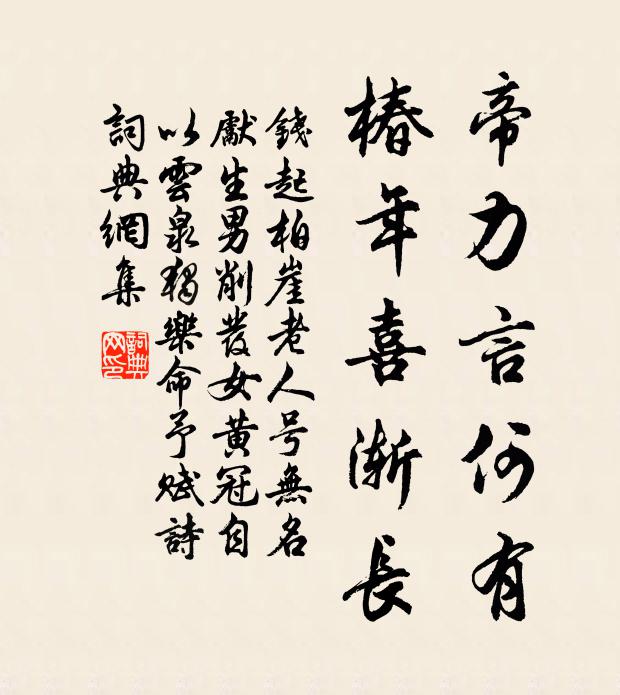 帝力言何有
椿年喜漸長
錢起柏崖老人号無名
獻生男削發女黃冠自
以雲泉獨樂命予賦詩
詞典網集
詞典网印